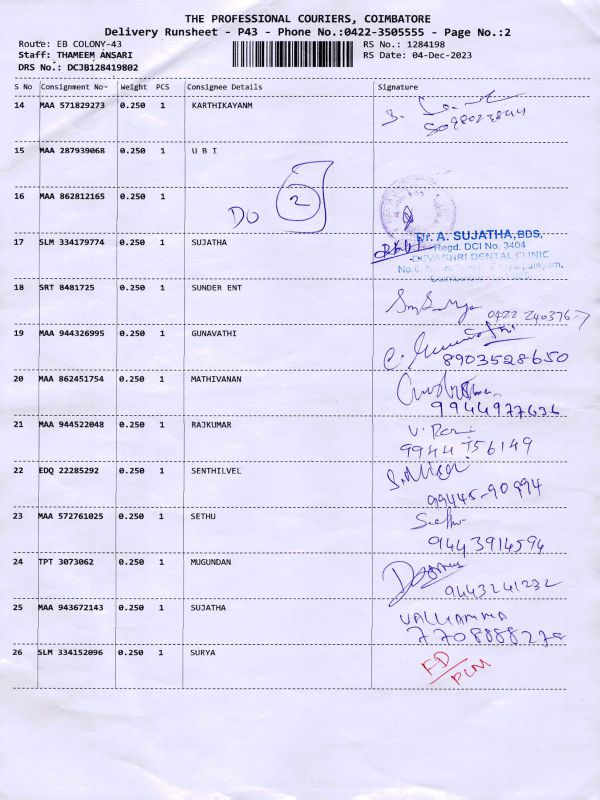 THE PROFESSIONAL COURIERS, COIMBATORE
Delivery Runsheet - P43 - Phone No.:0422-3505555 - Page No.:2
Route: EB COLONY-43
RS No.: 1284198
Staff: THAMEEM ANSARI
RS Date: 04-Dec-2023
DRS No.: DCJB128419802
S No Consignment No Weight PCS Consignee Details Signature
14 MAA 571829273 0.250 1 KARTHIKAYANM
15 MAA 287939068 0.250 1 U B I
16 MAA 862812165 0.250 1
DO 2
17 SLM 334179774 0.250 1 SUJATHA
Dr. A. SUJATHA,BDS,
Regd. DCI No. 3404
DEVASHRI DENTAL CLINIC
18 SRT 8481725 0.250 1 SUNDER ENT
0422 2403767
19 MAA 944326995 0.250 1 GUNAVATHI
8903528650
20 MAA 862451754 0.250 1 MATHIVANAN
9944977636
21 MAA 944522048 0.250 1 RAJKUMAR
V. Rani
9944756149
22 EDQ 22285292 0.250 1 SENTHILVEL
99445-90994
23 MAA 572761025 0.250 1 SETHU
Sethu
9443914594
24 TPT 3073062 0.250 1 MUGUNDAN
9443241232
25 MAA 943672143 0.250 1 SUJATHA
VALLIAMMA
26 SLM 334152096 0.250 1 SURYA
FD/PCM